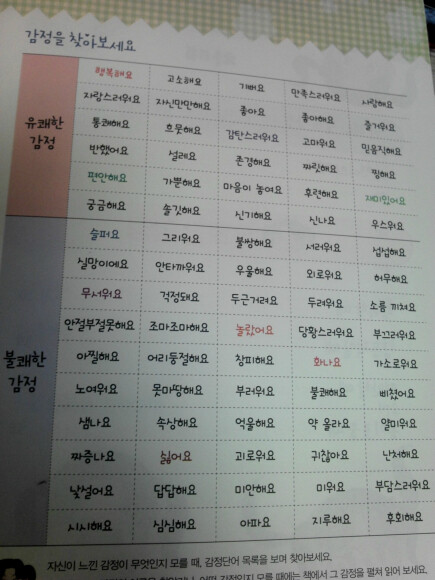 감정을 찾아보세요
유쾌한 감정
행복해요 고소해요 기뻐요 만족스러워요 사랑해요
자랑스러워요 자신만만해요 좋아요 좋아해요 즐거워요
통쾌해요 흐뭇해요 감탄스러워요 고마워요 믿음직해요
반했어요 설레요 존경해요 짜릿해요 찡해요
편안해요 가뿐해요 마음이 놓여요 후련해요 재미있어요
궁금해요 솔깃해요 신기해요 신나요 우스워요
불쾌한 감정
슬퍼요 그리워요 불쌍해요 서러워요 섭섭해요
실망이에요 안타까워요 우울해요 외로워요 허무해요
무서워요 걱정돼요 두근거려요 두려워요 소름 끼쳐요
안절부절못해요 조마조마해요 놀랐어요 당황스러워요 부끄러워요
아찔해요 어리둥절해요 창피해요 화나요 가소로워요
노여워요 못마땅해요 부러워요 불쾌해요 삐졌어요
샘나요 속상해요 억울해요 약 올라요 얄미워요
짜증나요 싫어요 괴로워요 귀찮아요 난처해요
낯설어요 답답해요 미안해요 미워요 부담스러워요
시시해요 심심해요 아파요 지루해요 후회해요
자신이 느낀 감정이 무엇인지 모를 때, 감정단어 목록을 보며 찾아보세요.
감정인지 모를 때에는 책에서 그 감정을 펼쳐 읽어 보세요.